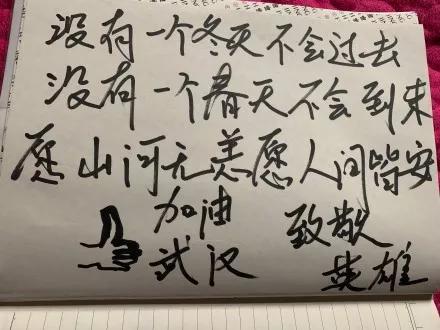 没有一个冬天不会过去
没有一个春天不会到来
愿山河无恙愿人间皆安
加油 致敬
武汉 英雄